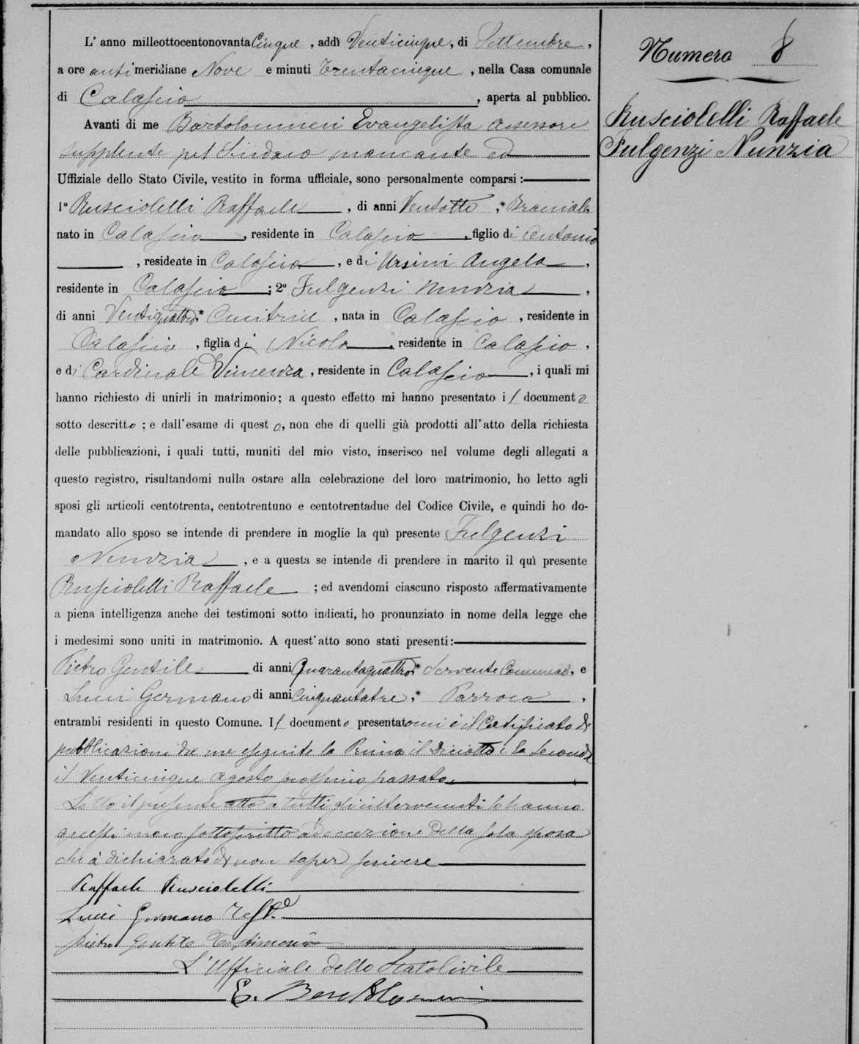 L' anno milleottocentonovantaCinque, addì Venticinque, di Settembre,
a ore antimeridiane Nove e minuti Trentacinque, nella Casa comunale
di Calascio, aperta al pubblico.
Avanti di me Bartolomucci Evangelista Assessore
supplente pel Sindaco mancante ed
Uffiziale dello Stato Civile, vestito in forma ufficiale, sono personalmente comparsi:
1° Rusciolelli Raffaele, di anni Ventotto,
nato in Calascio, residente in Calascio, figlio di Antonio
, residente in Calascio, e di Ursini Angela,
residente in Calascio; 2° Fulgenzi Nunzia,
di anni Ventiquattro, nata in Calascio, residente in
Calascio, figlia di Nicola, residente in Calascio,
e di Cardinale Vincenza, residente in Calascio, i quali mi
hanno richiesto di unirli in matrimonio; a questo effetto mi hanno presentato il documento
sotto descritto; e dall'esame di questo, non che di quelli già prodotti all'atto della richiesta
delle pubblicazioni, i quali tutti, muniti del mio visto, inserisco nel volume degli allegati a
questo registro, risultandomi nulla ostare alla celebrazione del loro matrimonio, ho letto agli
sposi gli articoli centotrenta, centotrentuno e centotrentadue del Codice Civile, e quindi ho do-
mandato allo sposo se intende di prendere in moglie la quì presente Fulgenzi
Nunzia, e a questa se intende di prendere in marito il quì presente
Rusciolelli Raffaele; ed avendomi ciascuno risposto affermativamente
a piena intelligenza anche dei testimoni sotto indicati, ho pronunziato in nome della legge che
i medesimi sono uniti in matrimonio. A quest'atto sono stati presenti:
Pietro Gentile di anni Quarantaquattro, Servente Comunale, e
Lucci Germano di anni Cinquantatre, Parroco,
entrambi residenti in questo Comune. Il documento presentatomi è il Certificato di
pubblicazioni da me eseguite la Prima il Diciotto e la Seconda
il Venticinque Agosto prossimo passato.
Letto il presente atto a tutti gl'intervenuti lo hanno
meco sottoscritto ad eccezione della sola sposa
che à dichiarato di non saper scrivere
Raffaele Rusciolelli
Lucci Germano Test.°
Pietro Gentile Testimonio
L'Ufficiale dello Stato Civile
E. Bartolomucci
Numero 8
Rusciolelli Raffaele
Fulgenzi Nunzia